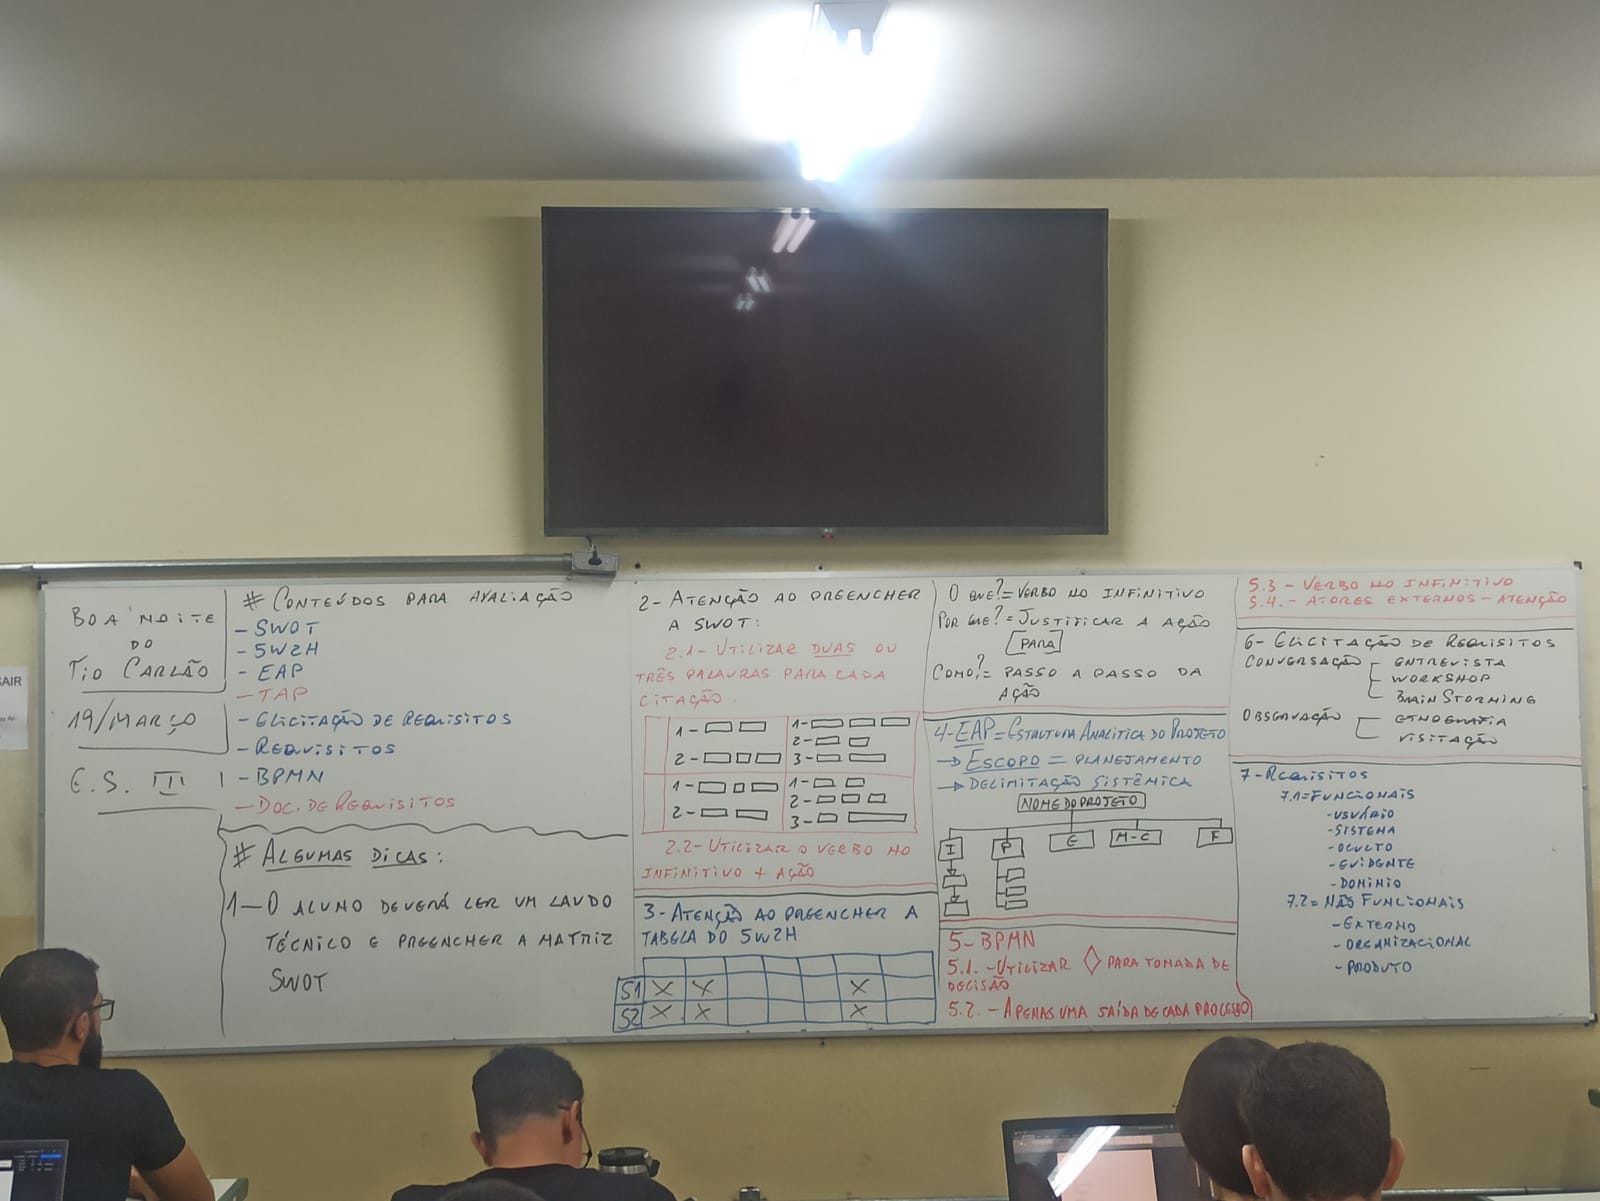 BOA NOITE
DO
TIO CARLÃO
19/MARÇO
E.S. III
# CONTEÚDOS PARA AVALIAÇÃO
- SWOT
- 5W2H
- EAP
- TAP
- ELICITAÇÃO DE REQUISITOS
- REQUISITOS
- BPMN
- DOC. DE REQUISITOS
# ALGUMAS DICAS:
1- O ALUNO DEVERÁ LER UM LAUDO
TÉCNICO E PREENCHER A MATRIZ
SWOT
2- ATENÇÃO AO PREENCHER
A SWOT:
2.1- UTILIZAR DUAS OU
TRÊS PALAVRAS PARA CADA
CITAÇÃO.
1-
2-
1-
2-
3-
1-
2-
1-
2-
3-
2.2- UTILIZAR O VERBO NO
INFINITIVO + AÇÃO
3- ATENÇÃO AO PREENCHER A
TABELA DO 5W2H
S1 X X X
S2 X X X
O QUE? = VERBO NO INFINITIVO
POR QUE? = JUSTIFICAR A AÇÃO
PARA
COMO? = PASSO A PASSO DA
AÇÃO
4- EAP = ESTRUTURA ANALITICA DO PROJETO
→ ESCOPO = PLANEJAMENTO
→ DELIMITAÇÃO SISTÊMICA
NOME DO PROJETO
I P E M-C F
5- BPMN
5.1. - UTILIZAR ◇ PARA TOMADA DE
DECISÃO
5.2. - APENAS UMA SAÍDA DE CADA PROCESSO
5.3 - VERBO NO INFINITIVO
5.4. - ATORES EXTERNOS - ATENÇÃO
6- ELICITAÇÃO DE REQUISITOS
CONVERSAÇÃO - ENTREVISTA
- WORKSHOP
- BRAINSTORMING
OBSERVAÇÃO - ETNOGRAFIA
- VISITAÇÃO
7- REQUISITOS
7.1= FUNCIONAIS
- USUÁRIO
- SISTEMA
- OCULTO
- EVIDENTE
- DOMINIO
7.2= NÃO FUNCIONAIS
- EXTERNO
- ORGANIZACIONAL
- PRODUTO